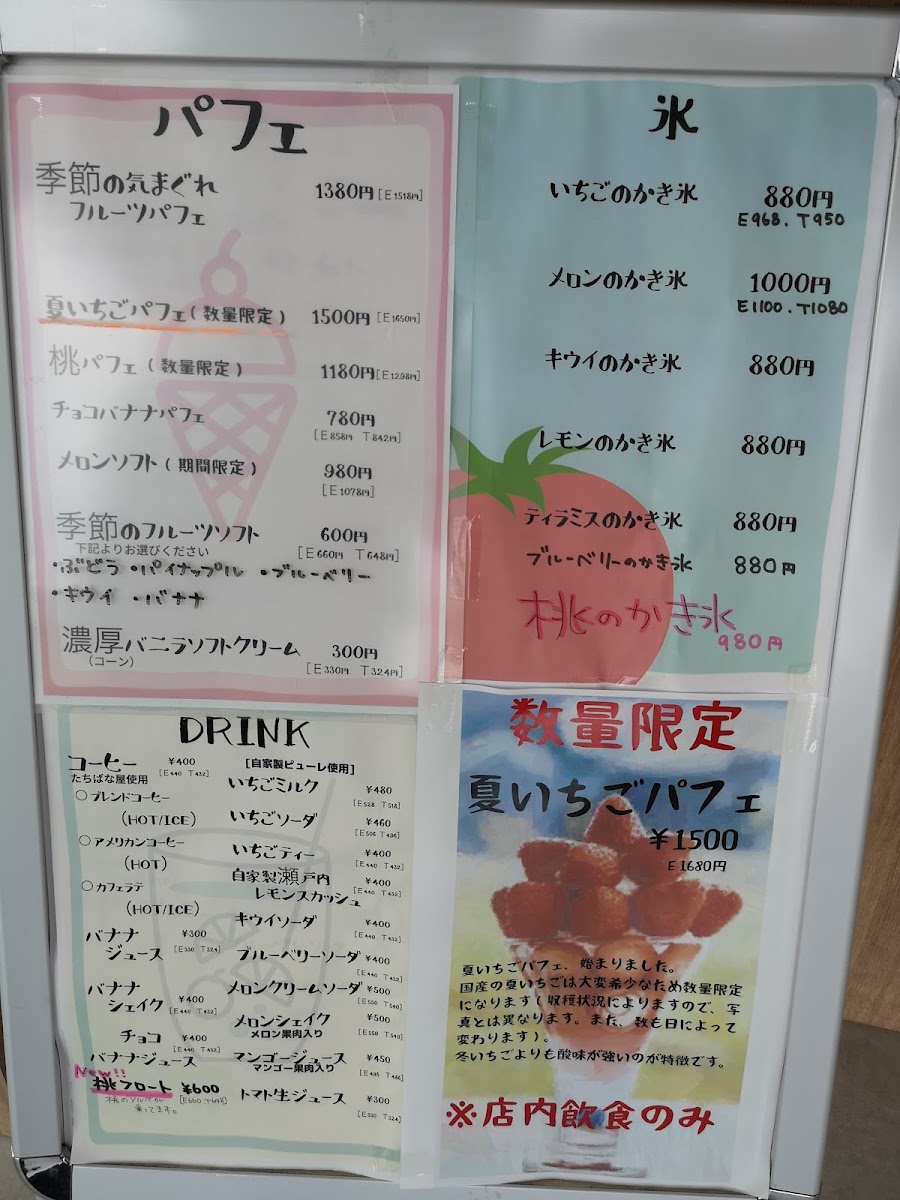 パフェ
季節の気まぐれ
フルーツパフェ
1380円[E1518円]
夏いちごパフェ(数量限定) 1500円[E1650円]
桃パフェ(数量限定) 1180円[E1298円]
チョコバナナパフェ 780円
[E858円 T842円]
メロンソフト(期間限定) 980円
[E1078円]
季節のフルーツソフト 600円
下記よりお選びください [E660円 T648円]
・ぶどう ・パイナップル ・ブルーベリー
・キウイ ・バナナ
濃厚バニラソフトクリーム 300円
(コーン) [E330円 T324円]
氷
いちごのかき氷 880円
E968.T950
メロンのかき氷 1000円
E1100.T1080
キウイのかき氷 880円
レモンのかき氷 880円
ティラミスのかき氷 880円
ブルーベリーのかき氷 880円
桃のかき氷
980円
DRINK
コーヒー ¥400
たちばな屋使用 [E440 T432]
○ブレンドコーヒー
(HOT/ICE)
○アメリカンコーヒー
(HOT)
○カフェラテ
(HOT/ICE)
バナナ ¥300
ジュース [E330 T324]
バナナ
シェイク ¥400
[E440 T432]
チョコ ¥400
[E440 T432]
バナナジュース
New!!
桃フロート ¥600
桃のソルベが [E660 T648]
乗ってます。
[自家製ピューレ使用]
いちごミルク ¥480
[E528 T518]
いちごソーダ ¥460
[E506 T496]
いちごティー ¥400
[E440 T432]
自家製瀬戸内 ¥400
レモンスカッシュ [E440 T432]
キウイソーダ ¥400
[E440 T432]
ブルーベリーソーダ ¥400
[E440 T432]
メロンクリームソーダ ¥500
[E550 T540]
メロンシェイク ¥500
メロン果肉入り [E550 T540]
マンゴージュース ¥450
マンゴー果肉入り [E495 T486]
トマト生ジュース ¥300
[E330 T324]
数量限定
夏いちごパフェ
¥1500
E1680円
夏いちごパフェ、始まりました。
国産の夏いちごは大変希少なため数量限定
になります(収穫状況によりますので、写
真とは異なります。また、数も日によって
変わります)。
冬いちごよりも酸味が強いのが特徴です。
※店内飲食のみ